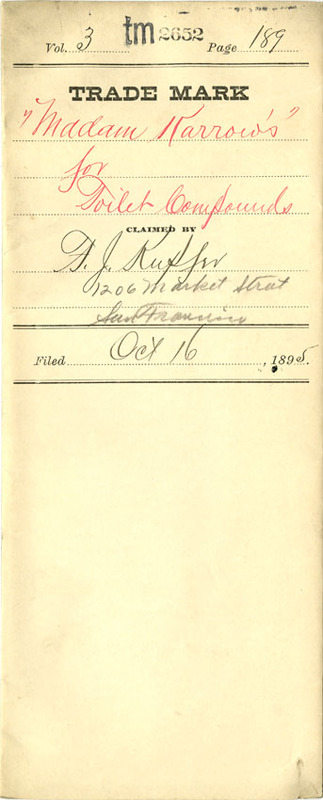 Vol. 3 tm 2652 Page 189
TRADE MARK
"Madam Karrow's"
for
Toilet Compounds
CLAIMED BY
J. Kupfer
1206 Market Street
San Francisco
Filed Oct 16, 1895.